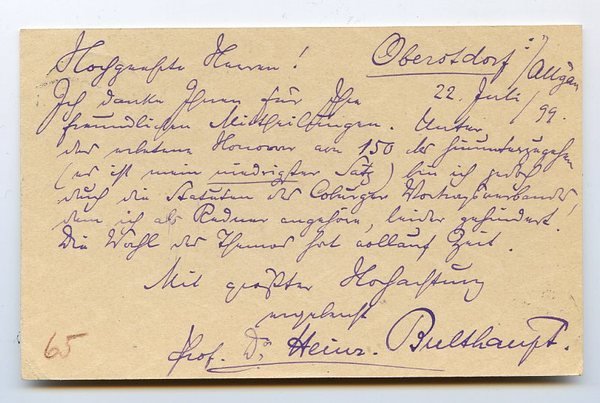 Hochgeehrte Herren! Oberstdorf i/Allgäu
22. Juli /99.
Ich danke Ihnen für Ihre
freundlichen Mittheilungen. Unter
das erbetene Honorar von 150 M hinunterzugehen
(es ist mein niedrigster Satz) bin ich jedoch
durch die Statuten des Coburger Vortragsverbandes,
dem ich als Redner angehöre, leider gehindert.
Die Wahl des Themas hat vollauf Zeit.
Mit größter Hochachtung
ergebenst
Prof. Dr. Heinr. Bulthaupt.
65